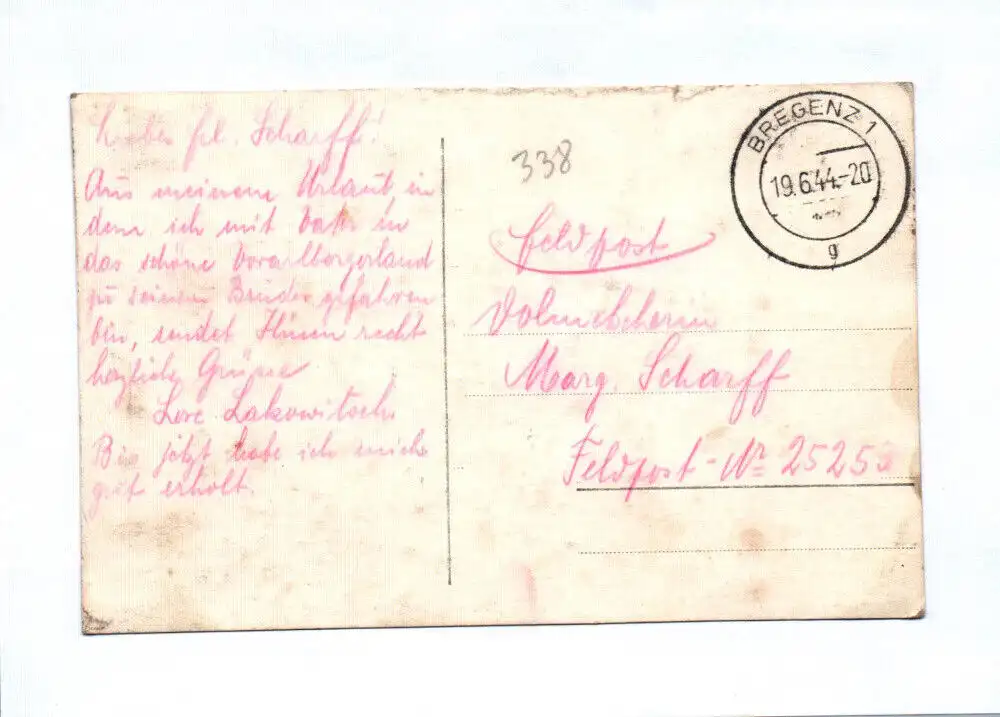 Liebes Frl. Scharff!
Aus meinem Urlaub in
dem ich mit Vater in
das schöne Vorarlbergerland
zu seinem Bruder gefahren
bin, sendet Ihnen recht
herzliche Grüsse
Lore Lakowitsch.
Bis jetzt habe ich mich
gut erholt.
338
BREGENZ 1
19.6.44.-20
g
Feldpost
Dolmetscherin
Marg. Scharff
Feldpost-№ 25253